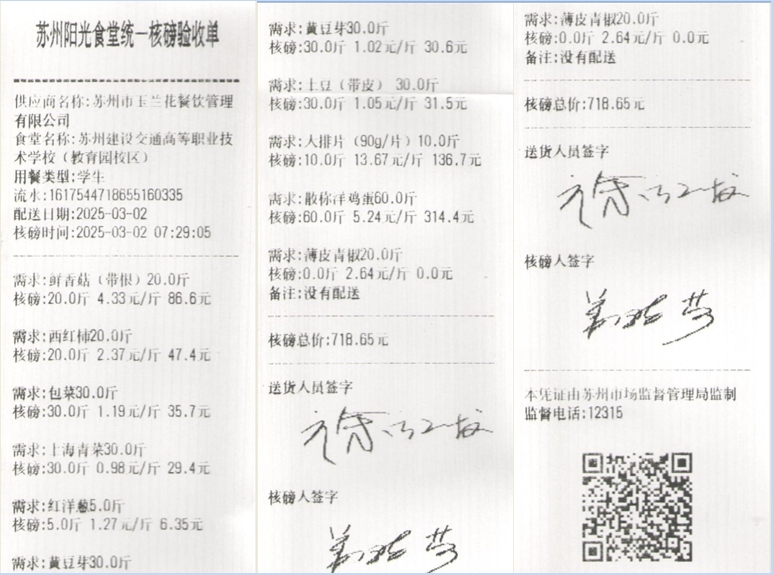 苏州阳光食堂统一核磅验收单
供应商名称:苏州市玉兰花餐饮管理
有限公司
食堂名称:苏州建设交通高等职业技
术学校（教育园校区）
用餐类型:学生
流水:1617544718655160335
配送日期:2025-03-02
核磅时间:2025-03-02 07:29:05
需求:鲜香菇（带根）20.0斤
核磅:20.0斤 4.33元/斤 86.6元
需求:西红柿20.0斤
核磅:20.0斤 2.37元/斤 47.4元
需求:包菜30.0斤
核磅:30.0斤 1.19元/斤 35.7元
需求:上海青菜30.0斤
核磅:30.0斤 0.98元/斤 29.4元
需求:红洋葱5.0斤
核磅:5.0斤 1.27元/斤 6.35元
需求:黄豆芽30.0斤
需求:黄豆芽30.0斤
核磅:30.0斤 1.02元/斤 30.6元
需求:土豆（带皮） 30.0斤
核磅:30.0斤 1.05元/斤 31.5元
需求:大排片（90g/片）10.0斤
核磅:10.0斤 13.67元/斤 136.7元
需求:散称洋鸡蛋60.0斤
核磅:60.0斤 5.24元/斤 314.4元
需求:薄皮青椒20.0斤
核磅:0.0斤 2.64元/斤 0.0元
备注:没有配送
核磅总价:718.65元
送货人员签字
核磅人签字
需求:薄皮青椒20.0斤
核磅:0.0斤 2.64元/斤 0.0元
备注:没有配送
核磅总价:718.65元
送货人员签字
核磅人签字
本凭证由苏州市场监督管理局监制
监督电话:12315